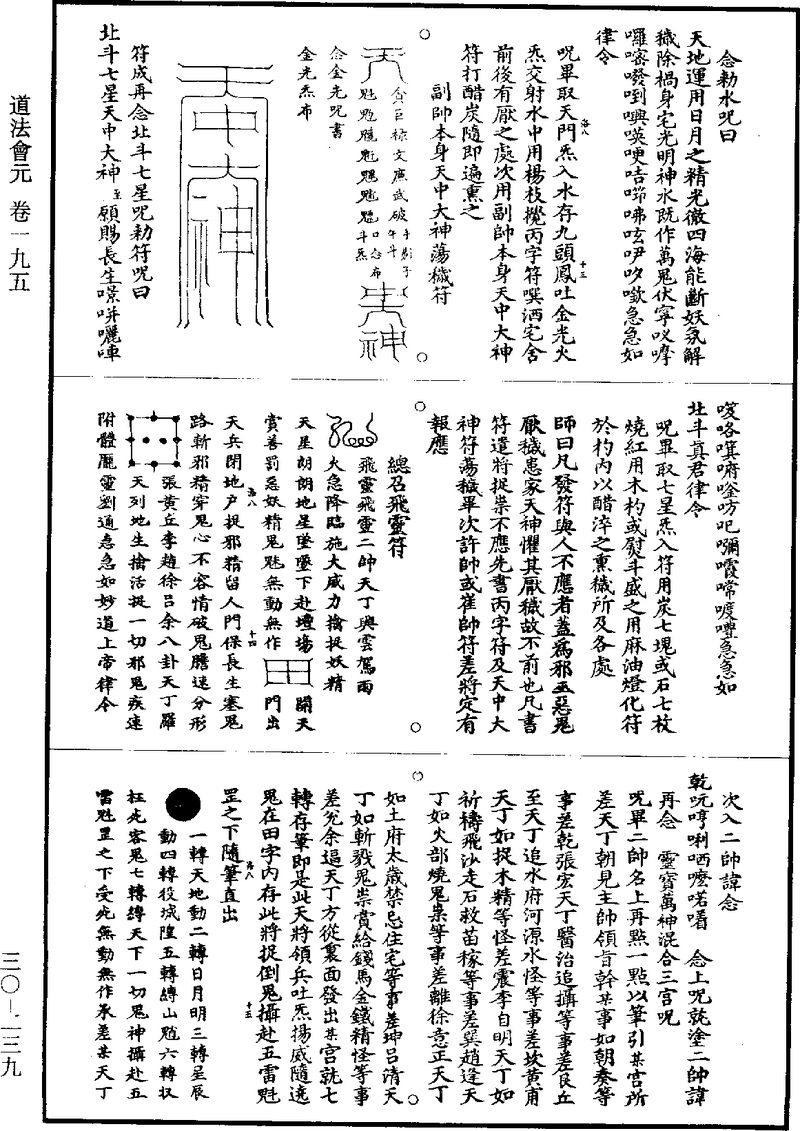 道法會元 卷一九五
三〇-二三九
念勑水呪曰
天地運用日月之精光徹四海能斷妖氛解
穢除禍身宅光明神水旣作萬鬼伏寧㕥㖼
囉嘧發到嗯㗲哽咭㗭咈呟吚吹𡄯急急如
律令
呪畢取天門炁入水存九頭鳳吐金光火
炁交射水中用楊枝攪丙字符噀洒宅舍
前後有厭之處次用副帥本身天中大神
符打醋炭隨即遍熏之
副帥本身天中大神蕩穢符
貪巨祿文廉武破
念金光呪書
金光炁布
符成再念北斗七星呪勑符呪曰
北斗七星天中大神 至 願賜長生
北斗真君律令
呪畢取七星炁入符用炭七塊或石七枚
燒紅用木杓或熨斗盛之用麻油燈化符
於杓內以醋淬之熏穢所及各處
師曰凡發符與人不應者蓋為邪巫惡鬼
厭穢患家天神懼其厭穢故不前也凡書
符遣將捉祟不應先書丙字符及天中大
神符蕩穢畢次許帥或崔帥符差將定有
報應
總召飛靈符
飛靈飛靈二帥天丁興雲駕雨
火急降臨施大威力擒捉妖精
天星朗朗地星墜墜下赴壇場
賞善罰惡妖精鬼魅無動無作
門出 開天
天兵閉地户捉邪精留人門保長生塞鬼
路斬邪精穿鬼心不容情破鬼膽速分形
張黃丘李趙徐呂余八卦天丁羅
天列地生擒活捉一切邪鬼疾速
附體龐靈劉通急急如妙道上帝律令
次入二帥諱念
乾吭哼唎哂嚒喏㗬 念上呪就塗二帥諱
再念 靈寶萬神混合三宮呪
呪畢二帥名上再點一點以筆引某宮所
差天丁朝見主帥領旨幹某事如朝奏等
事差乾張宏天丁醫治追攝等事差艮丘
至天丁追水府河源水怪等事差坎黃甫
天丁如捉木精等怪差震李自明天丁如
祈禱飛沙走石救苗稼等事差巽趙逢天
丁如火部燒鬼祟等事差離徐意正天丁
如土府太歲禁忌住宅等事差坤呂清天
丁如斬戮鬼祟賞給錢馬金鐵精怪等事
差兌余逼天丁方從裏面發出某宮就七
轉存筆即是此天將領兵吐炁揚威隨遶
鬼在田字內存此將捉倒鬼攝赴五雷魁
罡之下隨筆直出
一轉天地動二轉日月明三轉星辰
動四轉役城隍五轉縛山魈六轉収
枉死客鬼七轉縛天下一切鬼神攝赴五
雷魁罡之下受死無動無作承差某天丁